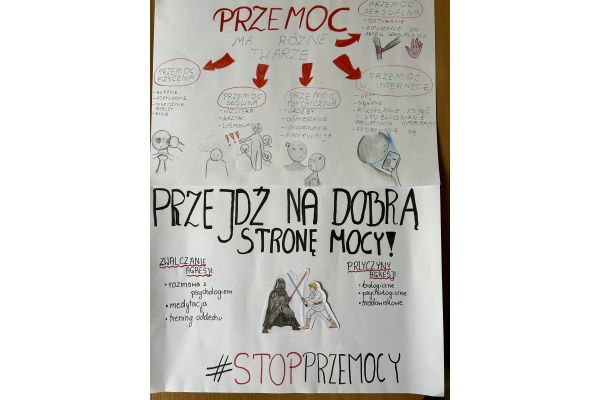 PRZEMOC
MA RÓŻNE
TWARZE
PRZEMOC
SEKSUALNA
- DOTYKANIE
- ZMUSZANIE DO
PRZEMOC
FIZYCZNA
- KOPANIE
- POPYCHANIE
- BICIE
PRZEMOC
SŁOWNA
- WYZWISKA
- KRZYKI
- UŚMIEWANIE
!!!
PRZEMOC
PSYCHICZNA
- GROŹBY
- OŚMIESZANIE
- IGNOROWANIE
- MANIPULACJA
PRZEMOC
W INTERNECIE
- HEJT
- NĘKANIE
- ROZSYŁANIE ZDJĘĆ
- UPUBLICZNIANIE
PRYWATNYCH INFORMACJI
SIĘ
PRZEJDŹ NA DOBRĄ
STRONĘ MOCY!
ZWALCZANIE
AGRESJI:
• rozmowa z
psychologiem
• medytacja
• trening oddechu
PRZYCZYNY
AGRESJI:
• biologiczne
• psychologiczne
• środowiskowe
#STOPPRZEMOCY